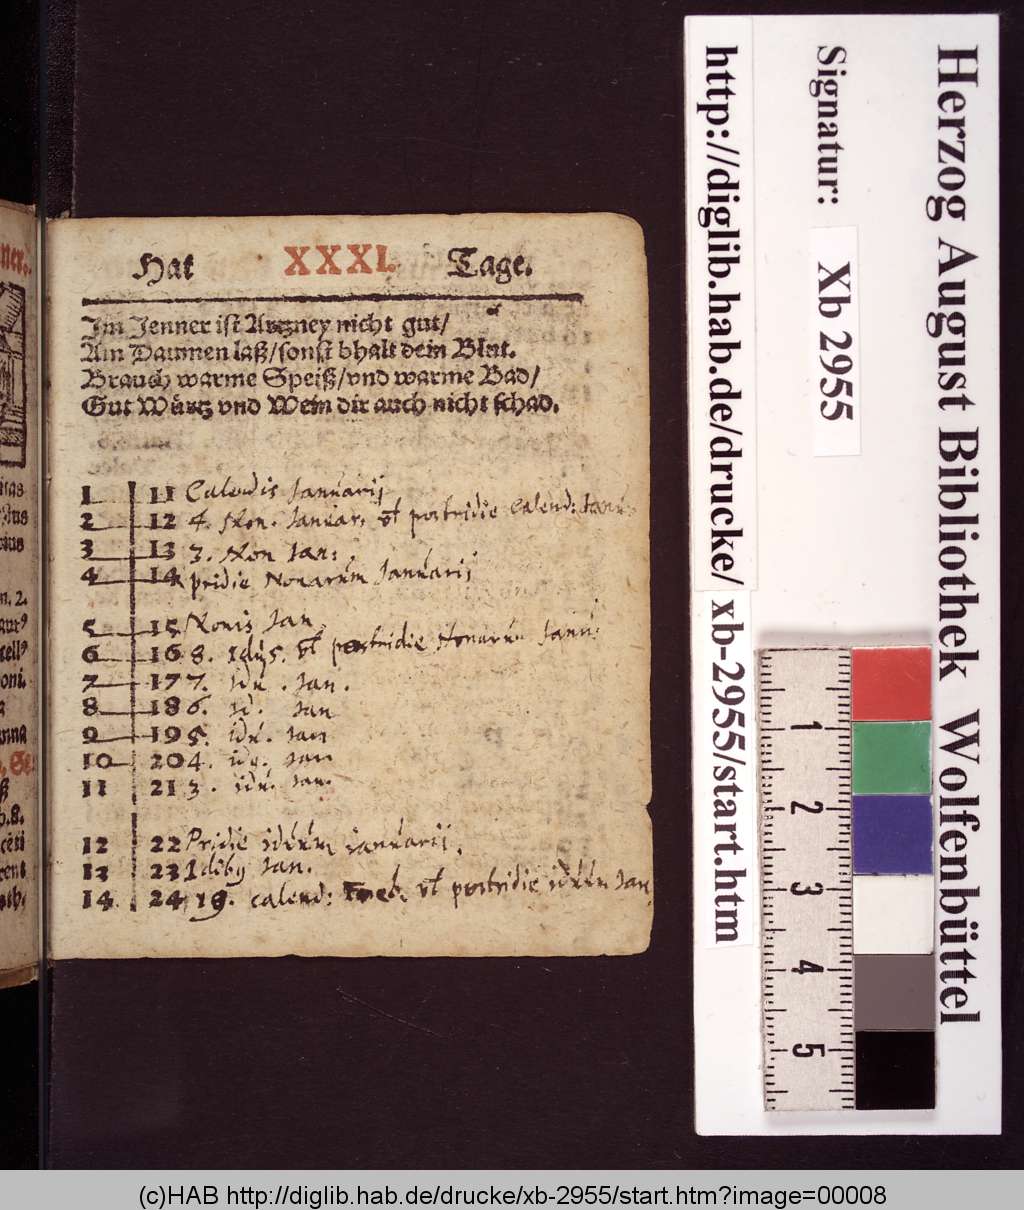 Hat XXXI. Tage.
Im Jenner ist Artzney nicht gut/
Am Daumen laß/sonst bhalt dein Blut.
Brauch warme Speiß/vnd warme Bad/
Gut Würtz vnd Wein dir auch nicht schad.
1 11 Calendis Januarij
2 12 4. Non. Januar. vl postridie Calend: Janu
3 13 3. Non Jan:
4 14 pridie Nonarum Januarij
5 15 Nonis Jan
6 16 8. Idus. vl postridie Nonarum Janu:
7 17 7. idu. Jan.
8 18 6. id. Jan
9 19 5. idu. Jan
10 20 4. idu. Jan
11 21 3. idu. Jan.
12 22 Pridie iduum januarij.
13 23 Idiby Jan.
14 24 19. calend: Feb. vl postridie iduum Jan
ner.
n. 2.
oni.
anna
Herzog August Bibliothek Wolfenbüttel
Signatur: Xb 2955
http://diglib.hab.de/drucke/ xb-2955/start.htm
1
2
3
4
5
(c)HAB http://diglib.hab.de/drucke/xb-2955/start.htm?image=00008